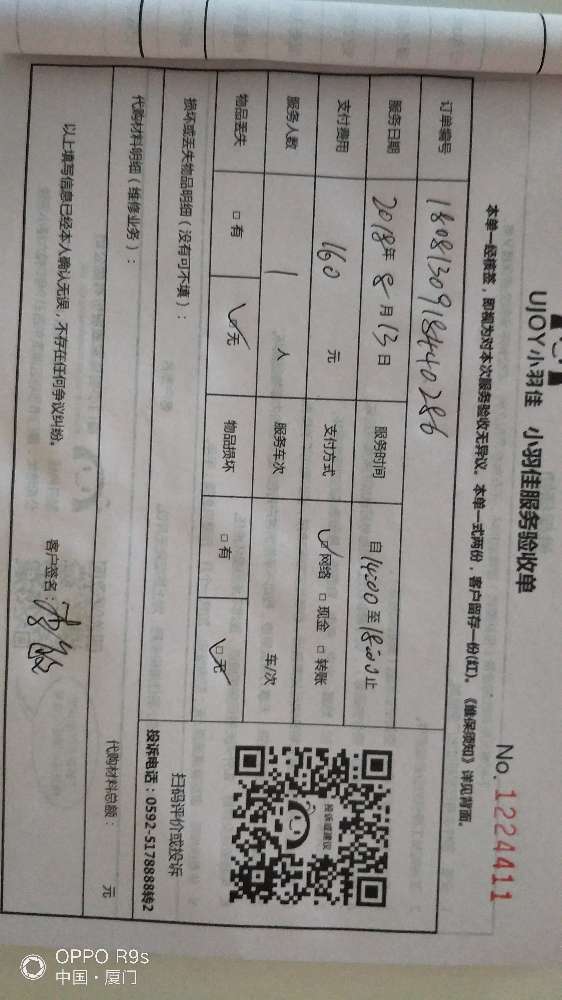 UJOY小羽佳 小羽佳服务验收单
No. 1224411
本单一经核签，即视为对本次服务验收无异议。本单一式两份，客户留存一份(红)。《维保须知》详见背面。
订单编号 1808130918440286
服务日期 2018年8月13日 服务时间 自14:00至18:00止
支付费用 160 元 支付方式 ☑网络 □现金 □转账
服务人数 1 人 服务车次 车/次
物品丢失 □有 ☑无 物品损坏 □有 ☑无
损坏或丢失物品明细（没有可不填）：
投诉或建议
扫码评价或投诉
投诉电话：0592-5178888转2
代购材料明细（维修业务）：
代购材料总额： 元
以上填写信息已经本人确认无误，不存在任何争议纠纷。
客户签名：
OPPO R9s
中国·厦门